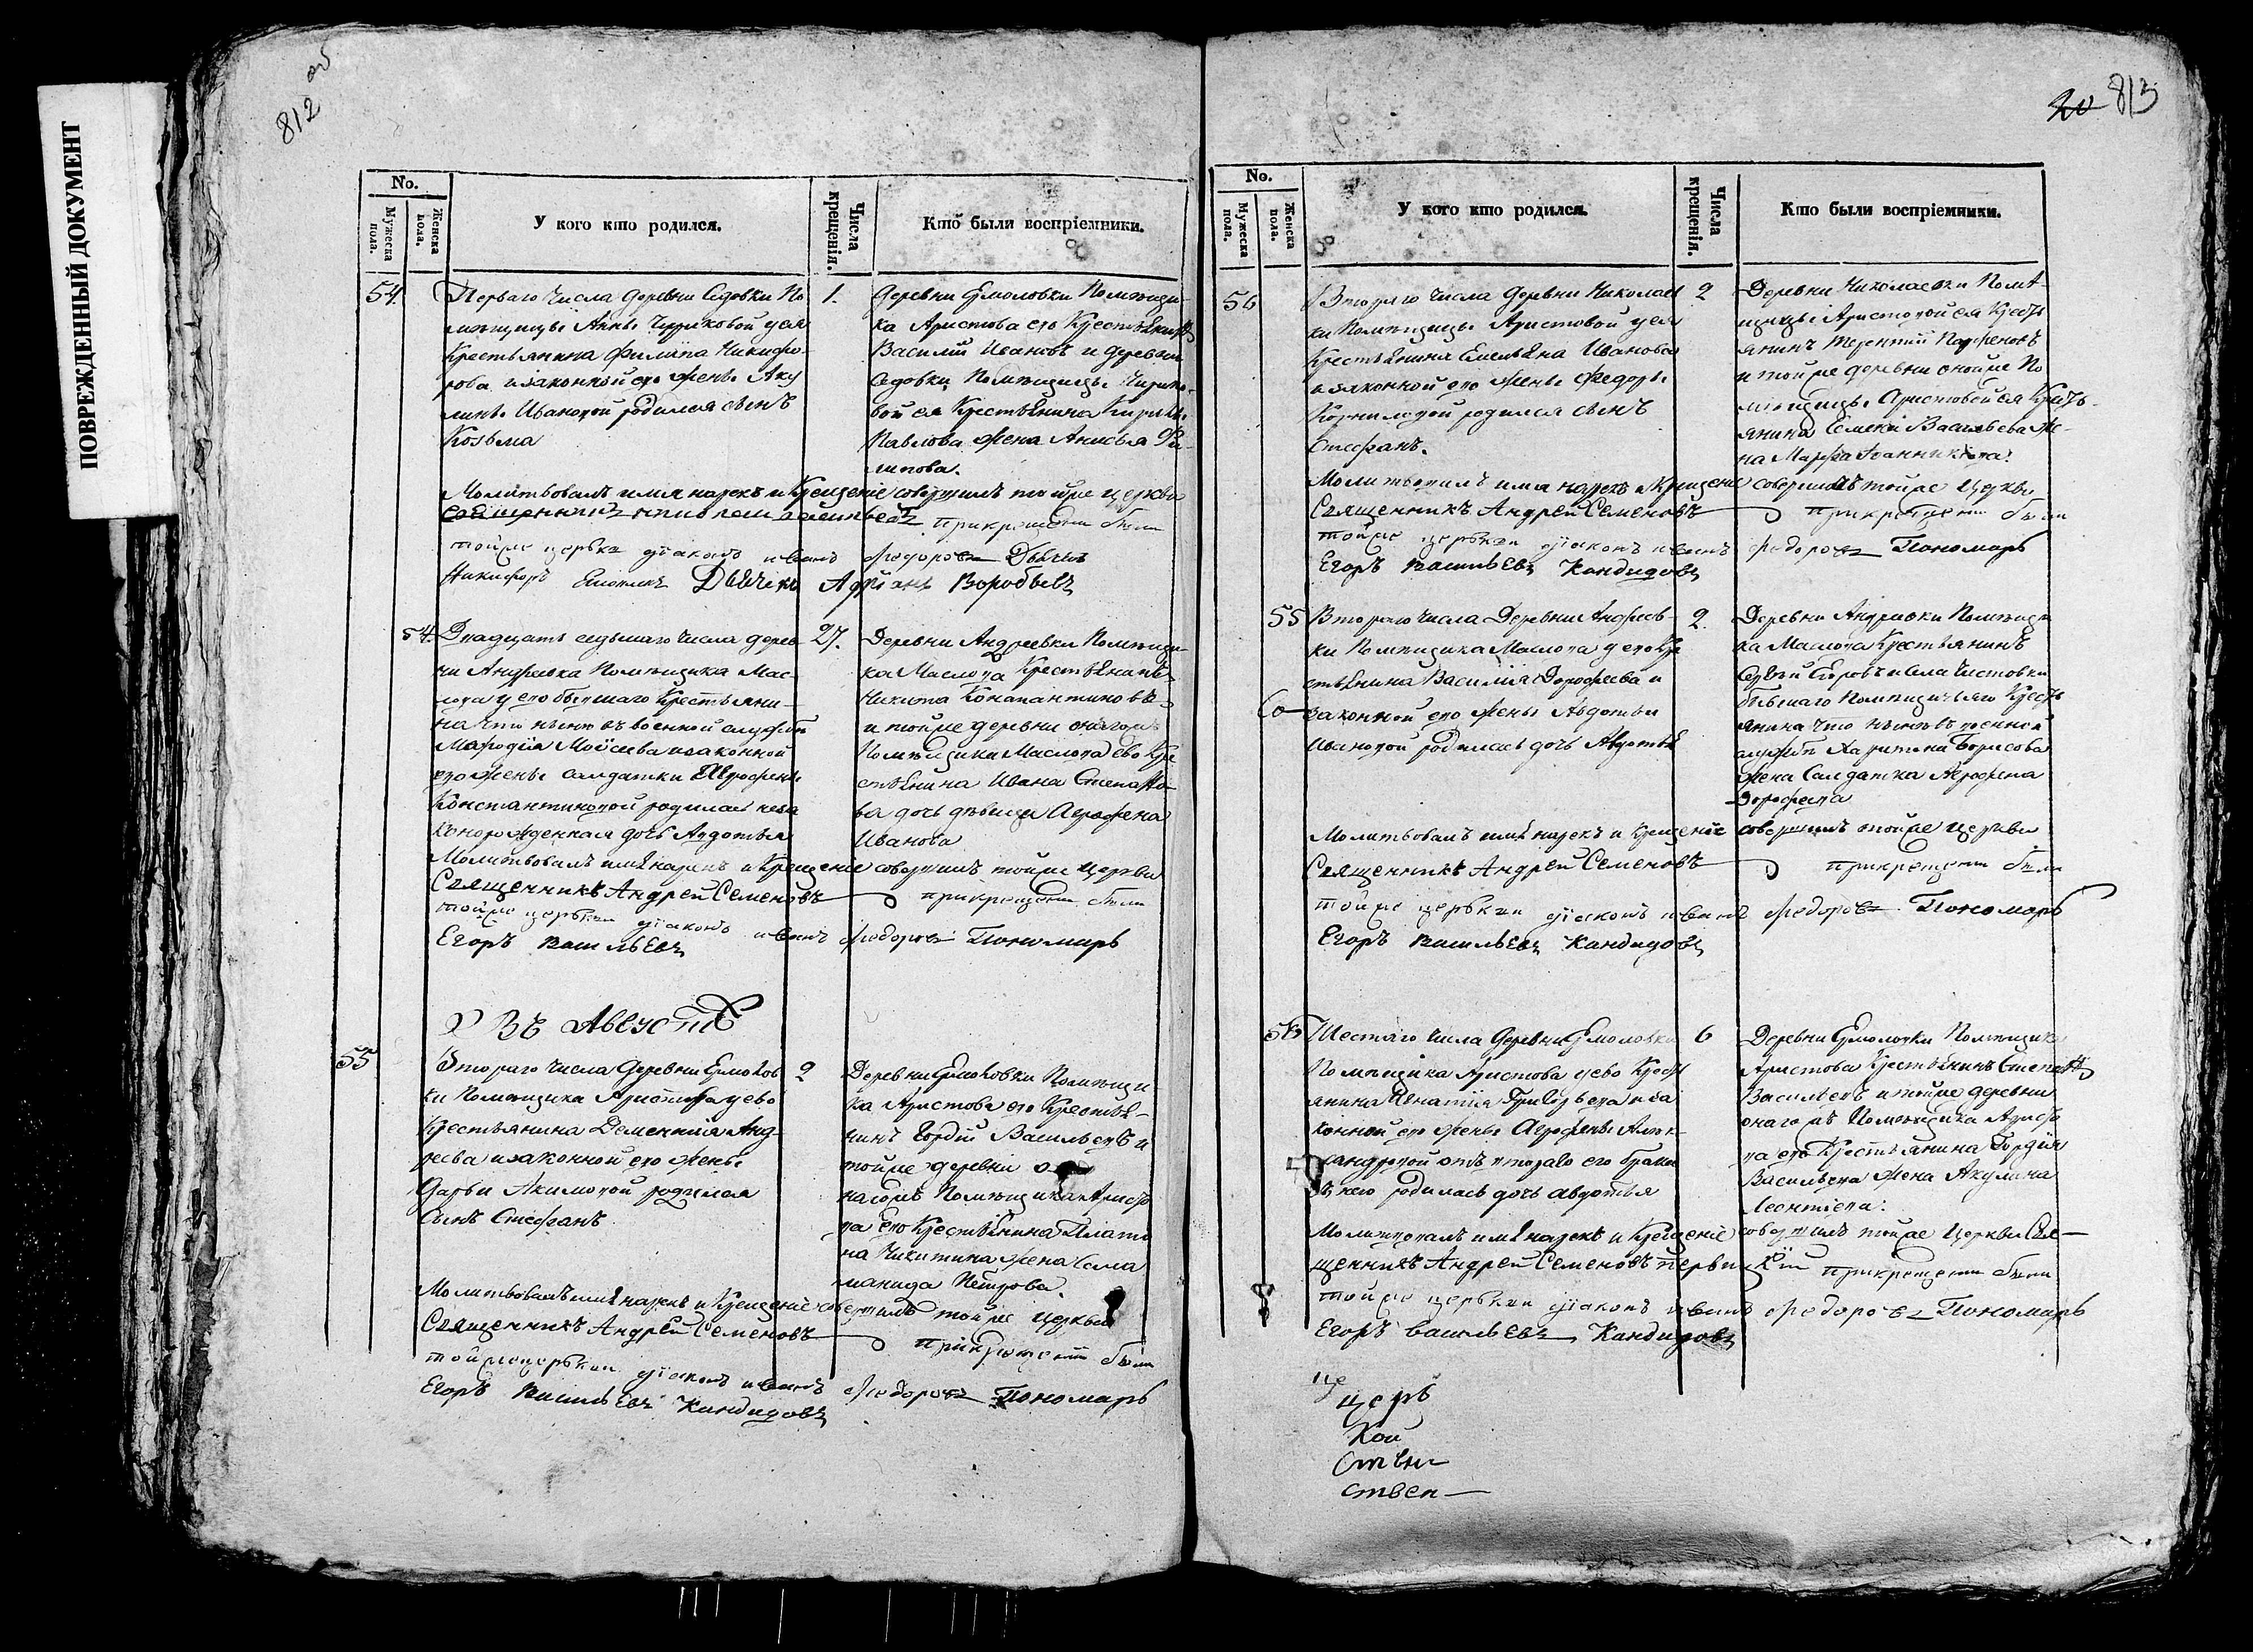 ПОВРЕЖДЕННЫЙ ДОКУМЕНТ
812 об
No.
Мужеска пола.
Женска пола.
У кого кто родился.
Числа крещенія.
Кто были воспріемники.
54.
Перваго числа деревни Седовки По
мѣщицы Анны Чириковой у ея
Крестьянина Филипа Никифо-
рова изаконной его жены Аку
лины Ивановой родился сынъ
Козьма
1.
Деревни Ермоловки Помѣщи-
ка Аристова его Крестьянинъ
Василій Ивановъ и деревни
Седовки Помѣщицы Чирико-
вой ея Крестьянина Кирила
Павлова жена Анисья Фи-
липова.
Молитвовалъ имя нарекъ и Крещеніе совершилъ тойже церкви
прикрещеніи были
тойже церкви діаконъ иванъ Федоровъ Дьячекъ
Никифоръ Дьячекъ Адріанъ Воробьевъ
54.
Двадцать седьмаго числа дерев
ни Андреевки Помѣщика Мас-
лова у его бывшаго Крестьяни-
на что нынѣ въ военной службѣ
Мафодія Моисеева изаконной
его жены салдатки Аграфены
Константиновой родилась неза
конорожденная дочь Авдотья
27.
Деревни Андреевки Помѣщи-
ка Маслова Крестьянинъ
Никита Константиновъ-
и тойже деревни онагожъ
Помѣщика Маслова ево Кре
стьянина Ивана Степано-
ва дочь дѣвица Аграфена
Иванова
Молитвовалъ имя нарекъ и Крещеніе совершилъ тойже Церкви
Священникъ Андрей Семеновъ прикрещеніи были
тойже церкви діаконъ иванъ Федоровъ Пономарь
Егоръ Васильевъ
Въ Августѣ
55
Втораго числа Деревни Ермолов
ки Помѣщика Аристова уево
Крестьянина Дементія Анд-
реева изаконной его жены
Дарьи Акимовой родился
Сынъ Стефанъ
2
Деревни Ермоловки Помѣщи
ка Аристова его Крестья-
нинъ Гордій Васильевъ и
тойже деревни о
нагожъ Помѣщика Аристо
ва Его Крестьянина Плато
на Никитина жена Сала
манида Петрова.
Молитвовалъ имя нарекъ и Крещеніе совершилъ тойже церкви
Священникъ Андрей Семеновъ прикрещеніи были
тойже церкви діаконъ иванъ Федоровъ Пономарь
Егоръ Васильевъ Кандидовъ
813
No.
Мужеска пола.
Женска пола.
У кого кто родился.
Числа крещенія.
Кто были воспріемники.
56
Втораго числа деревни Николаев
ки Помѣщицы Аристовой уея
Крестьянина Емельяна Иванова
изаконной его жены Федоры
Корниловой родился сынъ
Стефанъ.
2
Деревни Николаевки Помѣ-
щицы Аристовой ея Кресть
янинъ Терентій Парфеновъ
и тойже деревни онойже По
мѣщицы Аристовой ея Кресть-
янина Семена Васильева же-
на Марфа Іоанникіева.
Молитвовалъ имя нарекъ и Крещеніе совершилъ тойже Церкви
Священникъ Андрей Семеновъ прикрещеніи были
тойже церкви діаконъ иванъ Федоровъ Пономарь
Егоръ Васильевъ Кандидовъ
55
Втораго числа Деревни Андреев-
ки Помѣщика Маслова у его Кре
стьянина Василія Дорофеева и
законной его жены Авдотьи
Ивановой родилась дочь Авдотья
2.
Деревни Андреевки Помѣщи
ка Маслова Крестьянинъ
Сергѣй Егоровъ исела Чистовки
бывшаго Помѣщичьяго Кресть
янина что нынѣ въ военной
службѣ Харитона Борисова
жена Салдатка Аграфена
Дорофеева
Молитвовалъ имя нарекъ и Крещеніе совершилъ тойже церкви
Священникъ Андрей Семеновъ прикрещеніи были
тойже церкви діаконъ иванъ Федоровъ Пономарь
Егоръ Васильевъ Кандидовъ
56
Шестаго числа Деревни Ермоловки
Помѣщика Аристова уево Кресть
янина Игнатія Григорьева иза
конной его жены Аграфены Алек-
сандровой отъ втораго его брака
родилась дочь авдотья
6
Деревни Ермоловки Помѣщика
Аристова Крестьянинъ Степанъ
Васильевъ и тойже деревни
онагожъ Помѣщика Аристо
ва его Крестьянина Гордія
Васильева жена Акулина
Леонтіева.
Молитвовалъ имя нарекъ и Крещеніе совершилъ тойже Церкви Свя-
щенникъ Андрей Семеновъ прикрещеніи были
тойже церкви діаконъ иванъ Федоровъ Пономарь
Егоръ васильевъ Кандидовъ
це
церь
Кой
Ствен
ствен